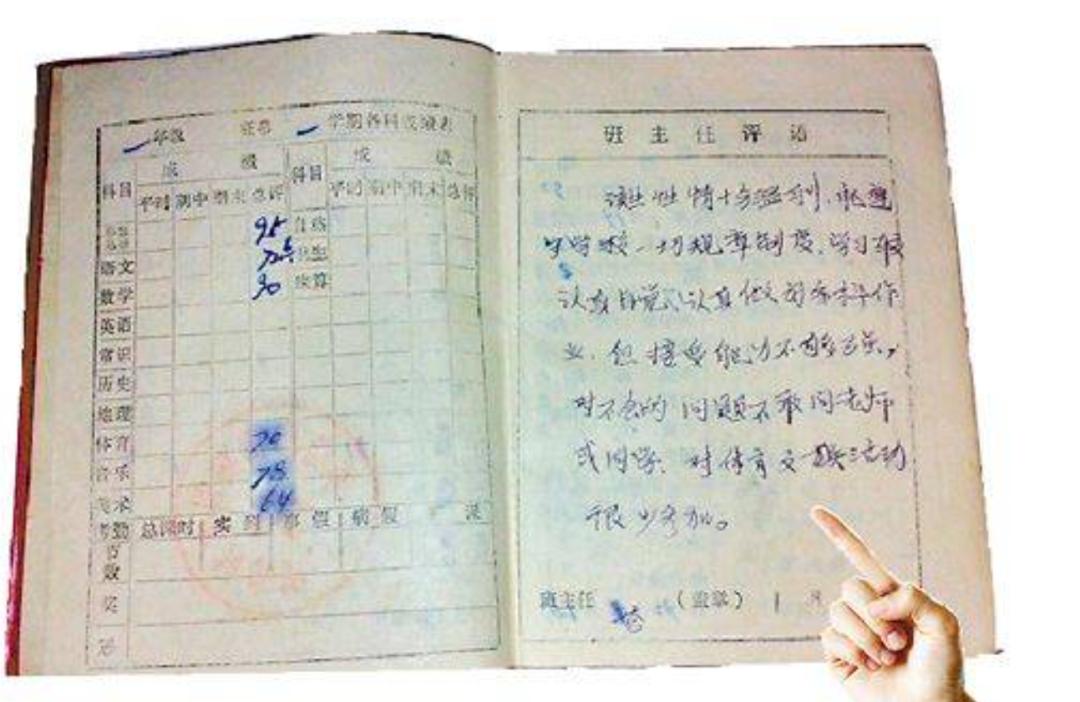 一 年级 一 学期各科成绩表
科目 成 绩 科目 成 绩
平时 期中 期末 总评 平时 期中 期末 总评
95 自然
语文 卫生
数学 90 珠算
英语
常识
历史
地理
体育 70
音乐 78
美术 64
考勤 总课时 实到 事假 病假
节数
奖
惩
班主任评语
该生性情十分温和,能遵
守学校一切规章制度,学习较
认真自觉,认真做好各科作
业,但接受能力不够理乐,
对不会的问题不敢问老师
或同学,对体育文娱活动
很少参加。
班主任 (盖章) 1 月